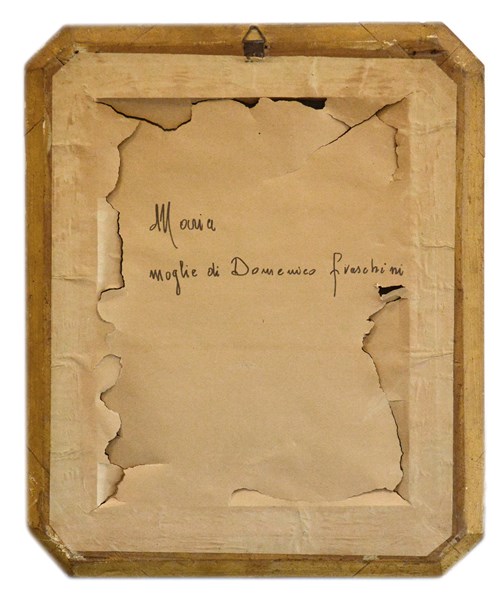 Maria
moglie di Domenico Fraschini